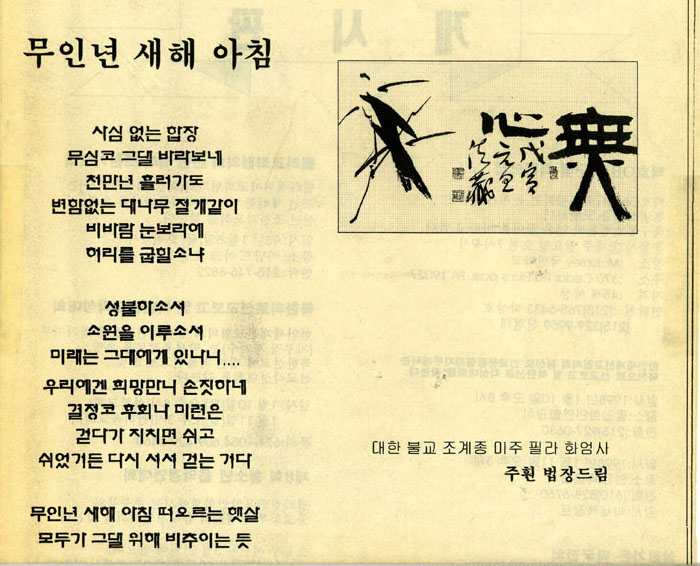 무인년 새해 아침
사심 없는 합장
무심코 그댈 바라보네
천만년 흘러가도
변함없는 대나무 절개같이
비바람 눈보라에
허리를 굽힐소냐
성불하소서
소원을 이루소서
미래는 그대에게 있나니....
우리에겐 희망만니 손짓하네
결정코 후회나 미련은
걷다가 지치면 쉬고
쉬었거든 다시 서서 걷는 거다
무인년 새해 아침 떠오르는 햇살
모두가 그댈 위해 비추이는 듯
無
心
戊寅
元旦
法藏
대한 불교 조계종 미주 필라 화엄사
주훤 법장드림